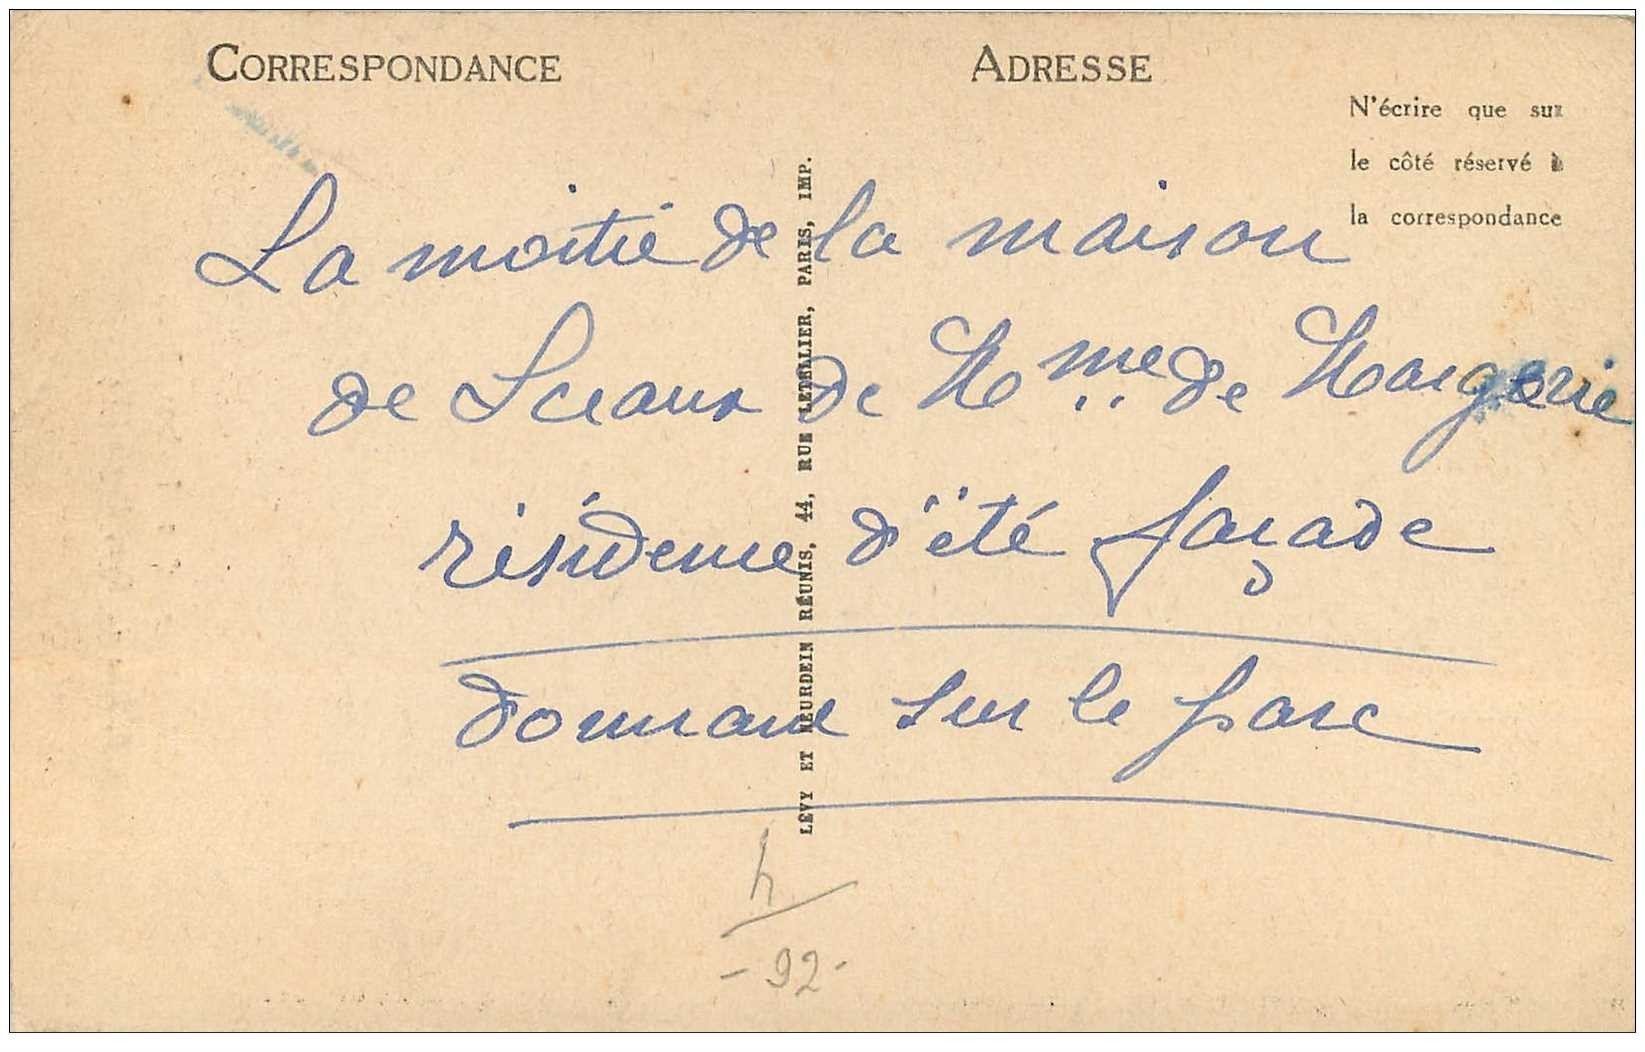 CORRESPONDANCE
ADRESSE
N'écrire que sur
le côté réservé à
la correspondance
La moitié de la maison
de Sceaux de Mme de Margerie
résidence d'été façade
donnant sur le parc
LÉVY ET NEURDEIN RÉUNIS, 44, RUE LETELLIER, PARIS, IMP.
h
- 92 -